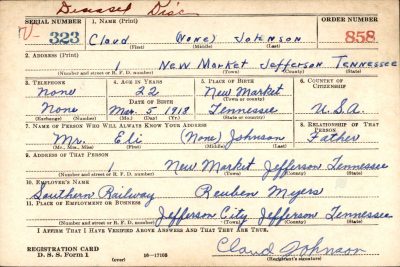 Deceased Disc
SERIAL NUMBER 1. NAME (Print) ORDER NUMBER
V- 323 Claud (None) Johnson 858
(First) (Middle) (Last)
2. ADDRESS (Print)
1 New Market Jefferson Tennessee
(Number and street or R. F. D. number) (Town) (County) (State)
3. TELEPHONE 4. AGE IN YEARS 5. PLACE OF BIRTH 6. COUNTRY OF CITIZENSHIP
None 22 New Market
DATE OF BIRTH (Town or county)
None Mar. 5 1918 Tennessee U.S.A.
(Exchange) (Number) (Mo.) (Day) (Yr.) (State or country)
7. NAME OF PERSON WHO WILL ALWAYS KNOW YOUR ADDRESS 8. RELATIONSHIP OF THAT PERSON
Mr. Eli (None) Johnson Father
(Mr., Mrs., Miss) (First) (Middle) (Last)
9. ADDRESS OF THAT PERSON
1 New Market Jefferson Tennessee
(Number and street or R. F. D. number) (Town) (County) (State)
10. EMPLOYER'S NAME
Southern Railway Reuben Meyers
11. PLACE OF EMPLOYMENT OR BUSINESS
Jefferson City Jefferson Tennessee
(Number and street or R. F. D. number) (Town) (County) (State)
I AFFIRM THAT I HAVE VERIFIED ABOVE ANSWERS AND THAT THEY ARE TRUE.
REGISTRATION CARD
D. S. S. Form 1 (over) 16—17105 Claud Johnson
(Registrant's signature)